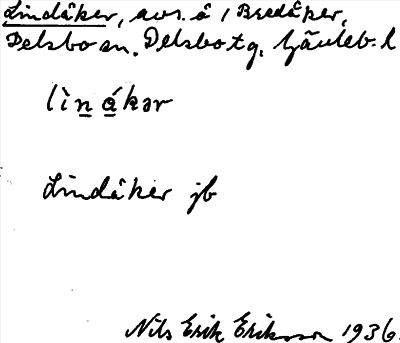 Lindåker, avs. å 1 Bredåker,
Delsbo sn. Delsbo tg. Gävleb. l
lìnákər
Lindåker jb
Nils Erik Eriksson 1936.